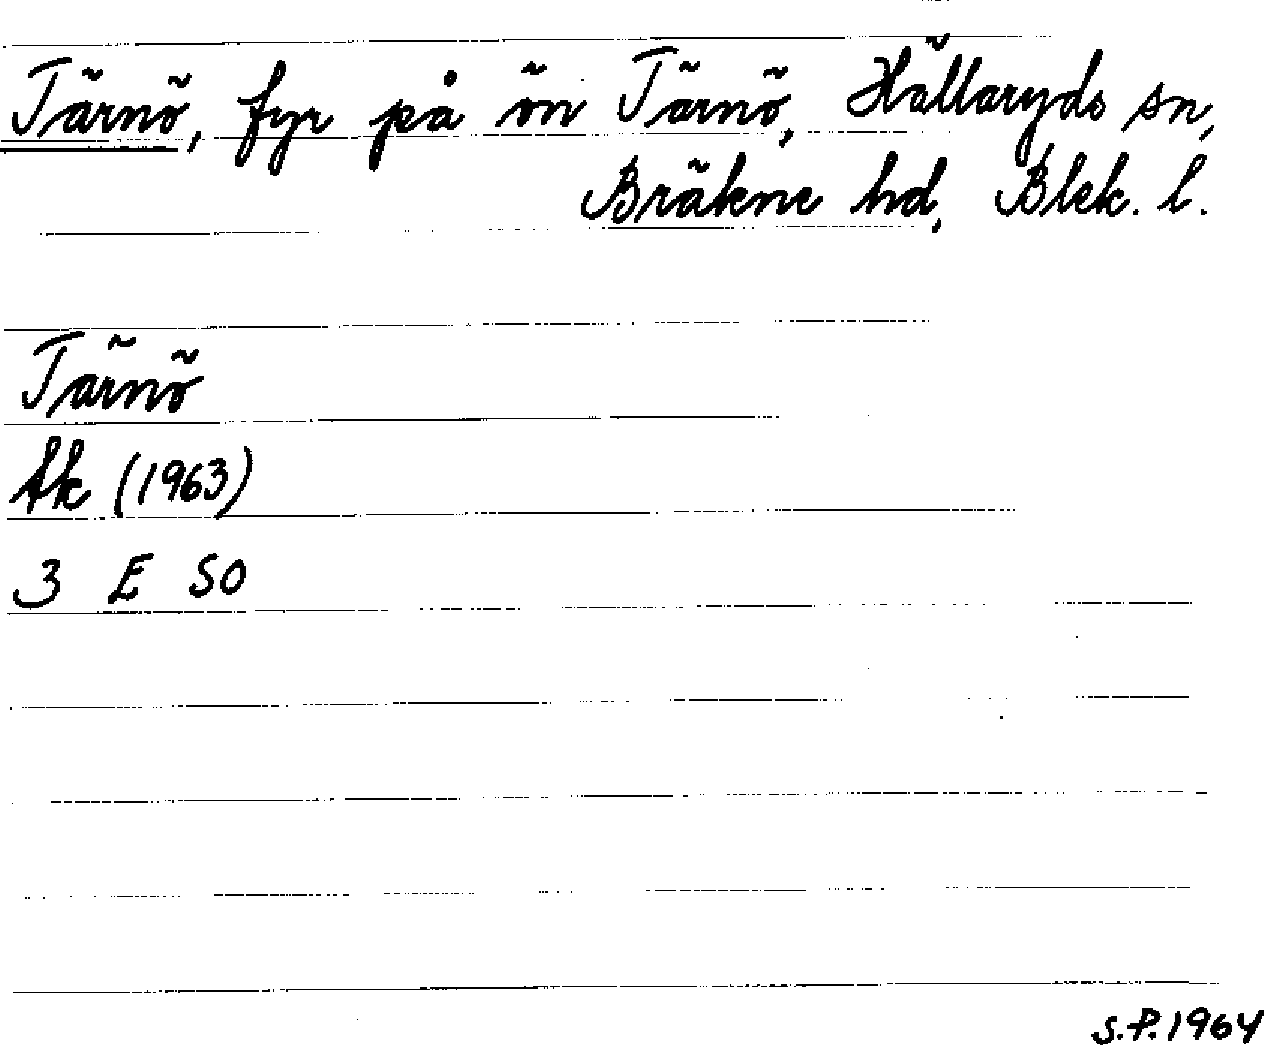 Tärnö, fyr på ön Tärnö, Hällaryds sn,
Bräkne hd, Blek. l.
Tärnö
Ak (1963)
3 E SO
S.P. 1964